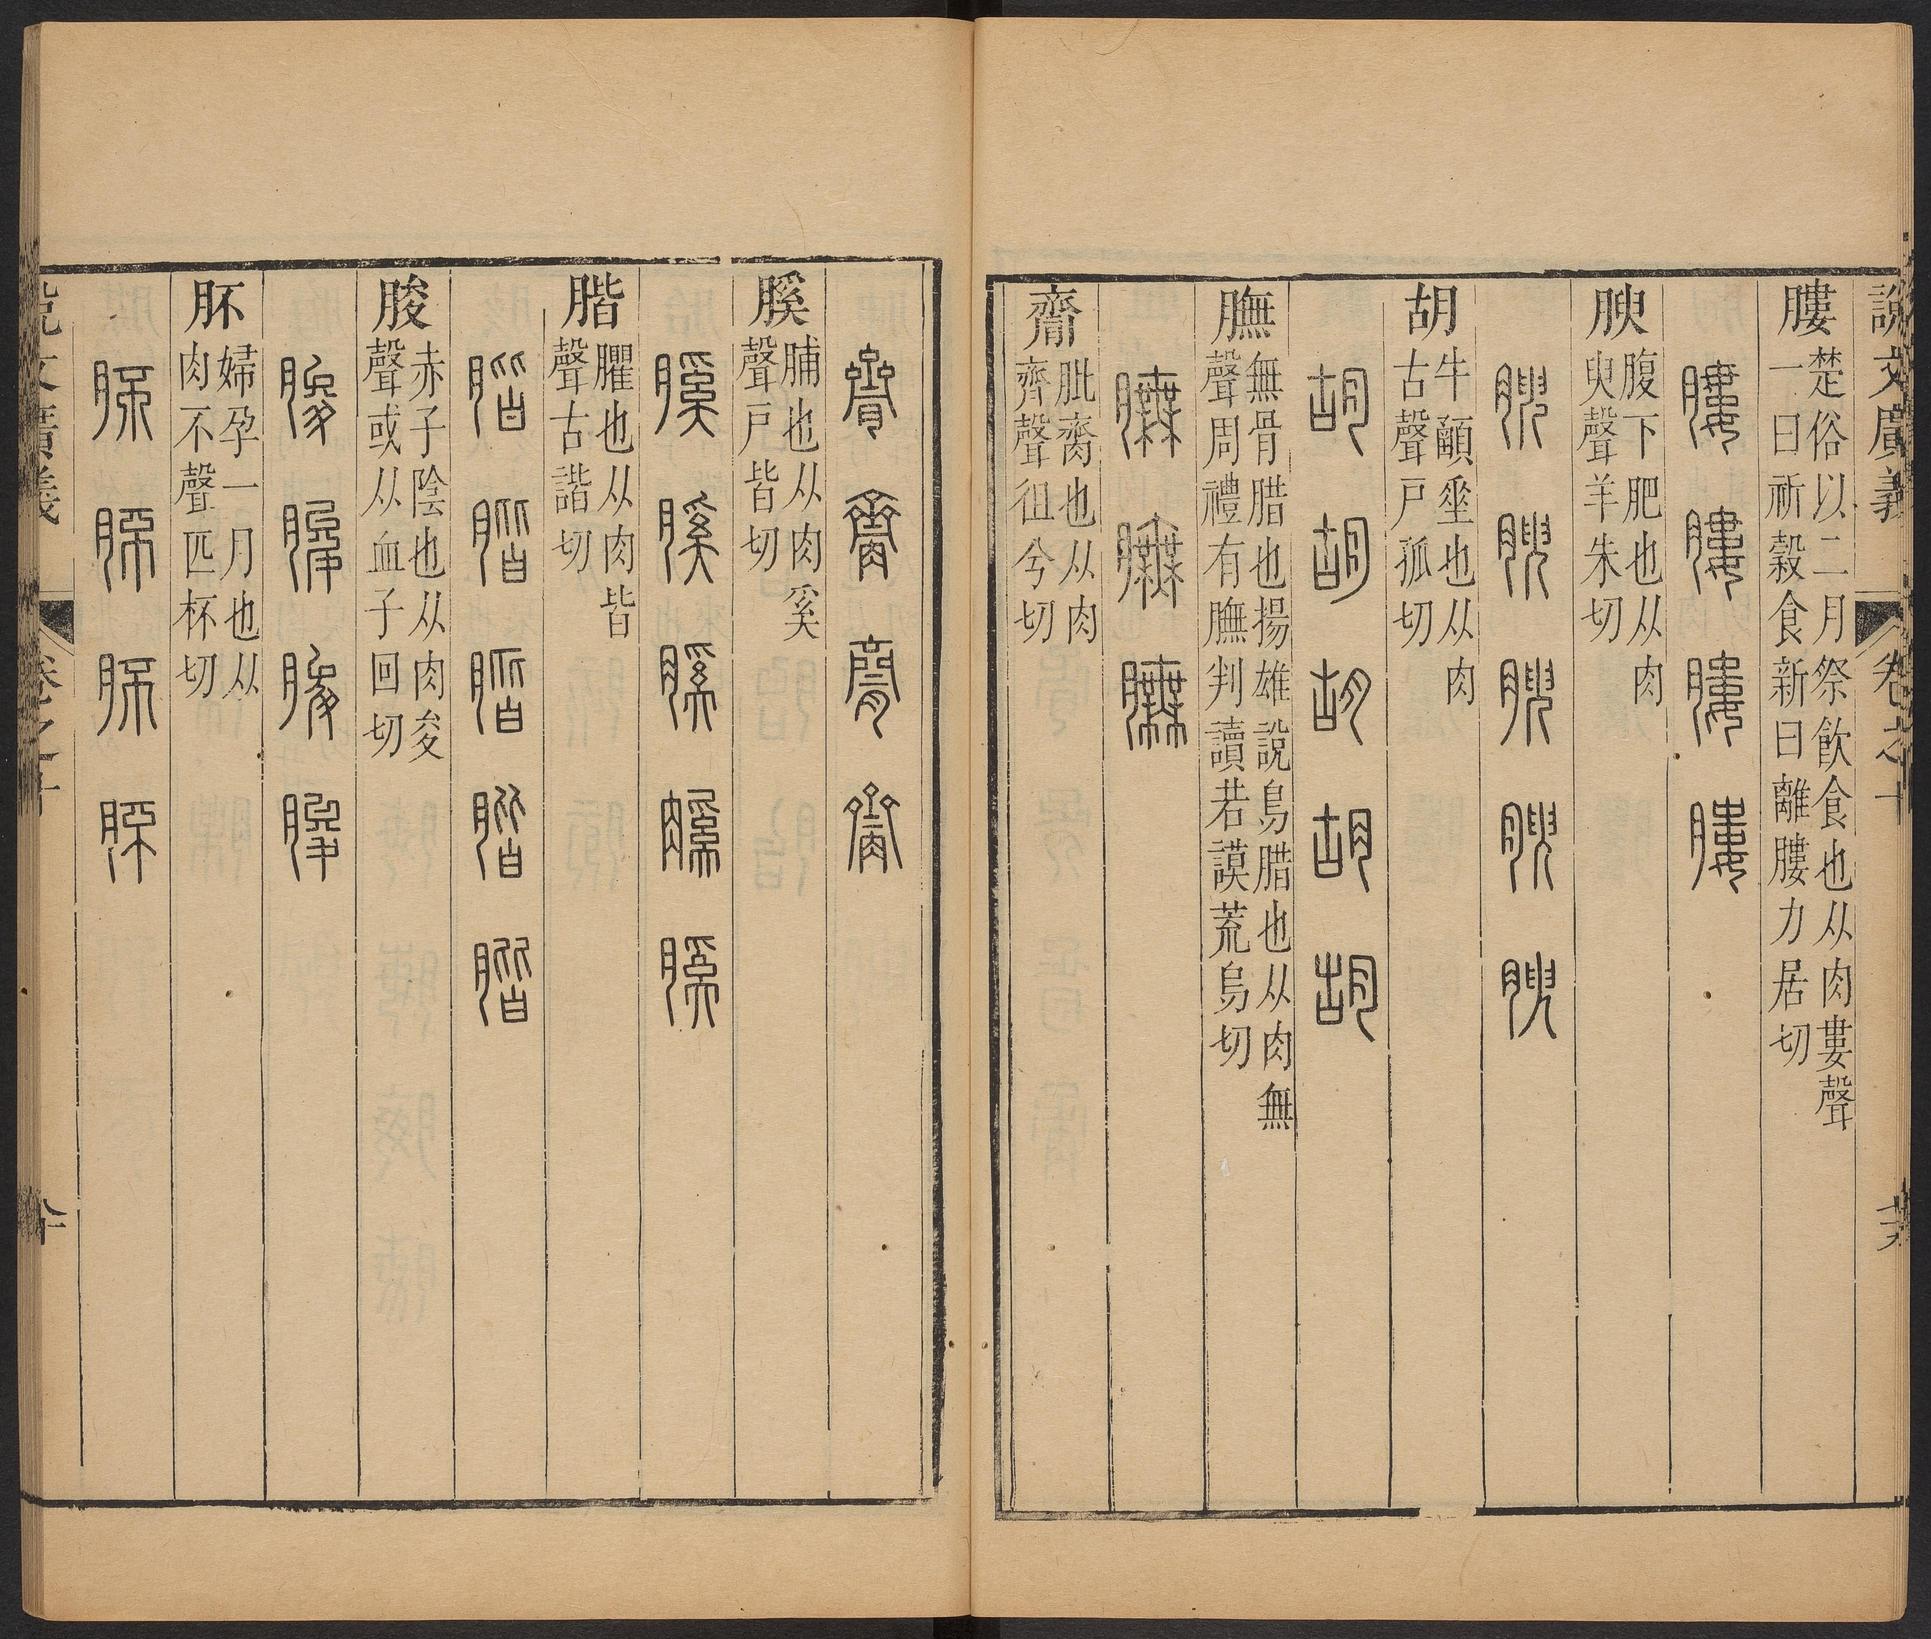 說文廣義 卷之十
膢 楚俗以二月祭飲食也从肉婁聲
一曰祈穀食新曰離膢力居切
膢膢膢膢
腴 腹下肥也从肉
臾聲羊朱切
腴腴腴腴腴
胡 牛顄垂也从肉
古聲戸孤切
胡胡胡胡胡
膴 無骨腊也揚雄說鳥腊也从肉無
聲周禮有膴判讀若謨荒烏切
膴膴膴
齎 肶齎也从肉
齊聲徂兮切
齎齎齎齎
膎 脯也从肉奚
聲戸皆切
膎膎膎膎膎
腊 臞也从肉皆
聲古諧切
脧 赤子陰也从肉夋
聲或从血子回切
脧脧脧脧
肧 婦孕一月也从
肉不聲匹杯切
肧肧肧肧
說文廣義 卷之十 八十